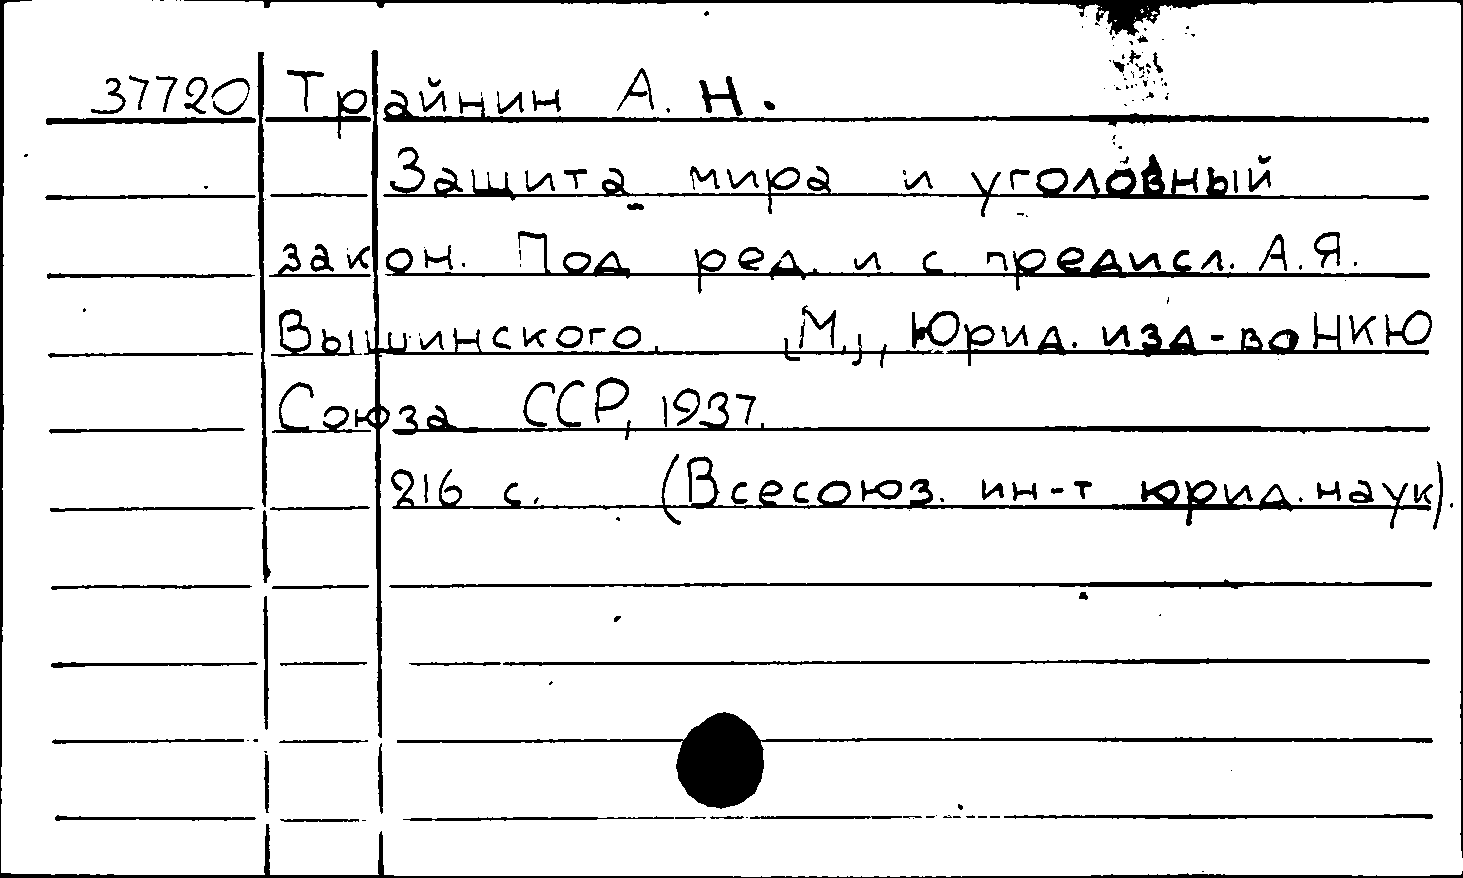 37720 Трайнин А. Н.
Защита мира и уголовный
закон. Под ред. и с предисл. А.Я.
Вышинского. [М.], Юрид. изд-во НКЮ
Союза ССР, 1937.
216 с. (Всесоюз. ин-т юрид. наук).